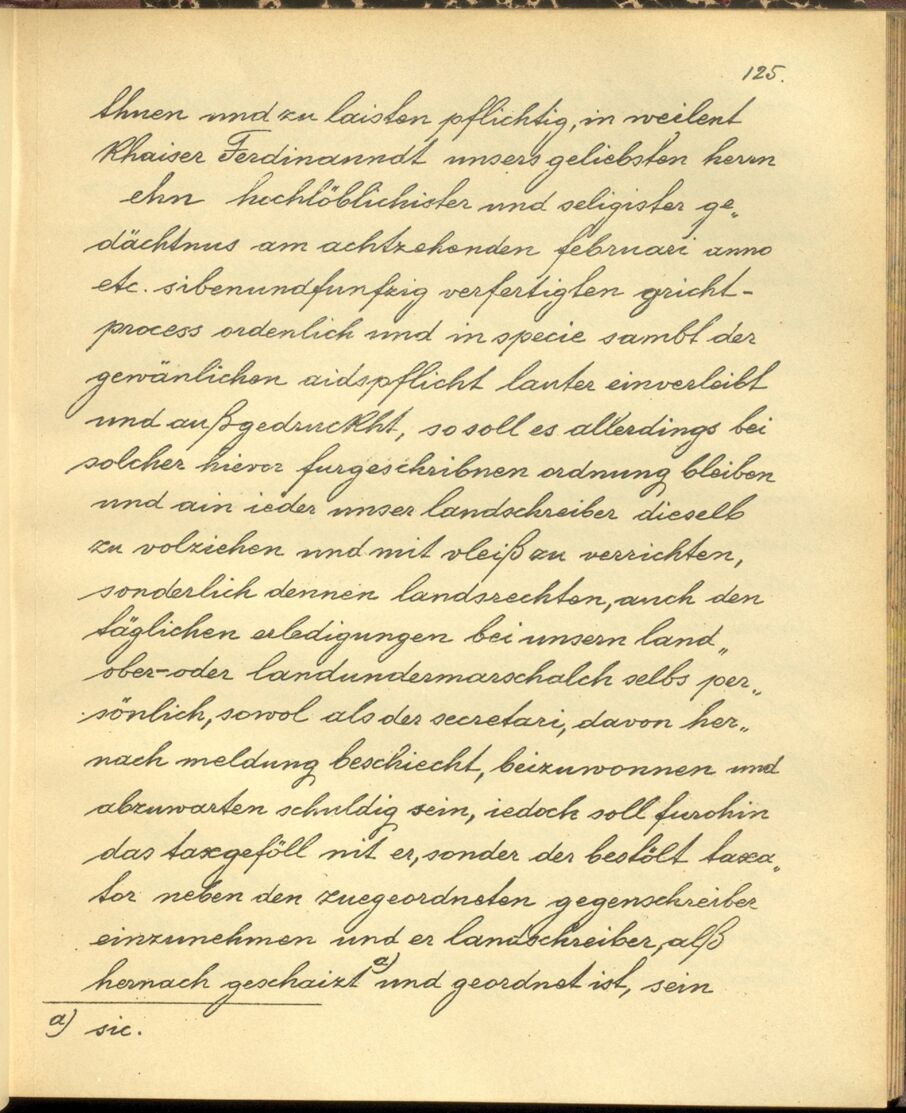 125.
thuen und zu laisten pflichtig, in weilent
Khaiser Ferdinanndt unsers geliebsten herrn
ehn hochlöblichister und seligister ge„
dächtnus am achtzehenden februari anno
etc. sibenundfunfzig verfertigten gricht-
process ordenlich und in specie sambt der
gewänlichen aidspflicht lauter einverleibt
und außgedruckht, so soll es allerdings bei
solcher hievor furgeschribnen ordnung bleiben
und ain ieder unser landschreiber dieselb
zu volziehen und mit vleiß zu verrichten,
sonderlich dennen landsrechten, auch den
täglichen erledigungen bei unsern land„
ober- oder landundermarschalch selbs per„
sönlich, sowol als der secretari, davon her„
nach meldung beschiecht, beizuwonnen und
abzuwarten schuldig sein, iedoch soll furohin
das taxgeföll nit er, sonder der bestölt taxa„
tor neben den zuegeordneten gegenschreiber
einzunehmen und er landschreiber, alß
hernach geschaizt a) und geordnet ist, sein
a) sic.